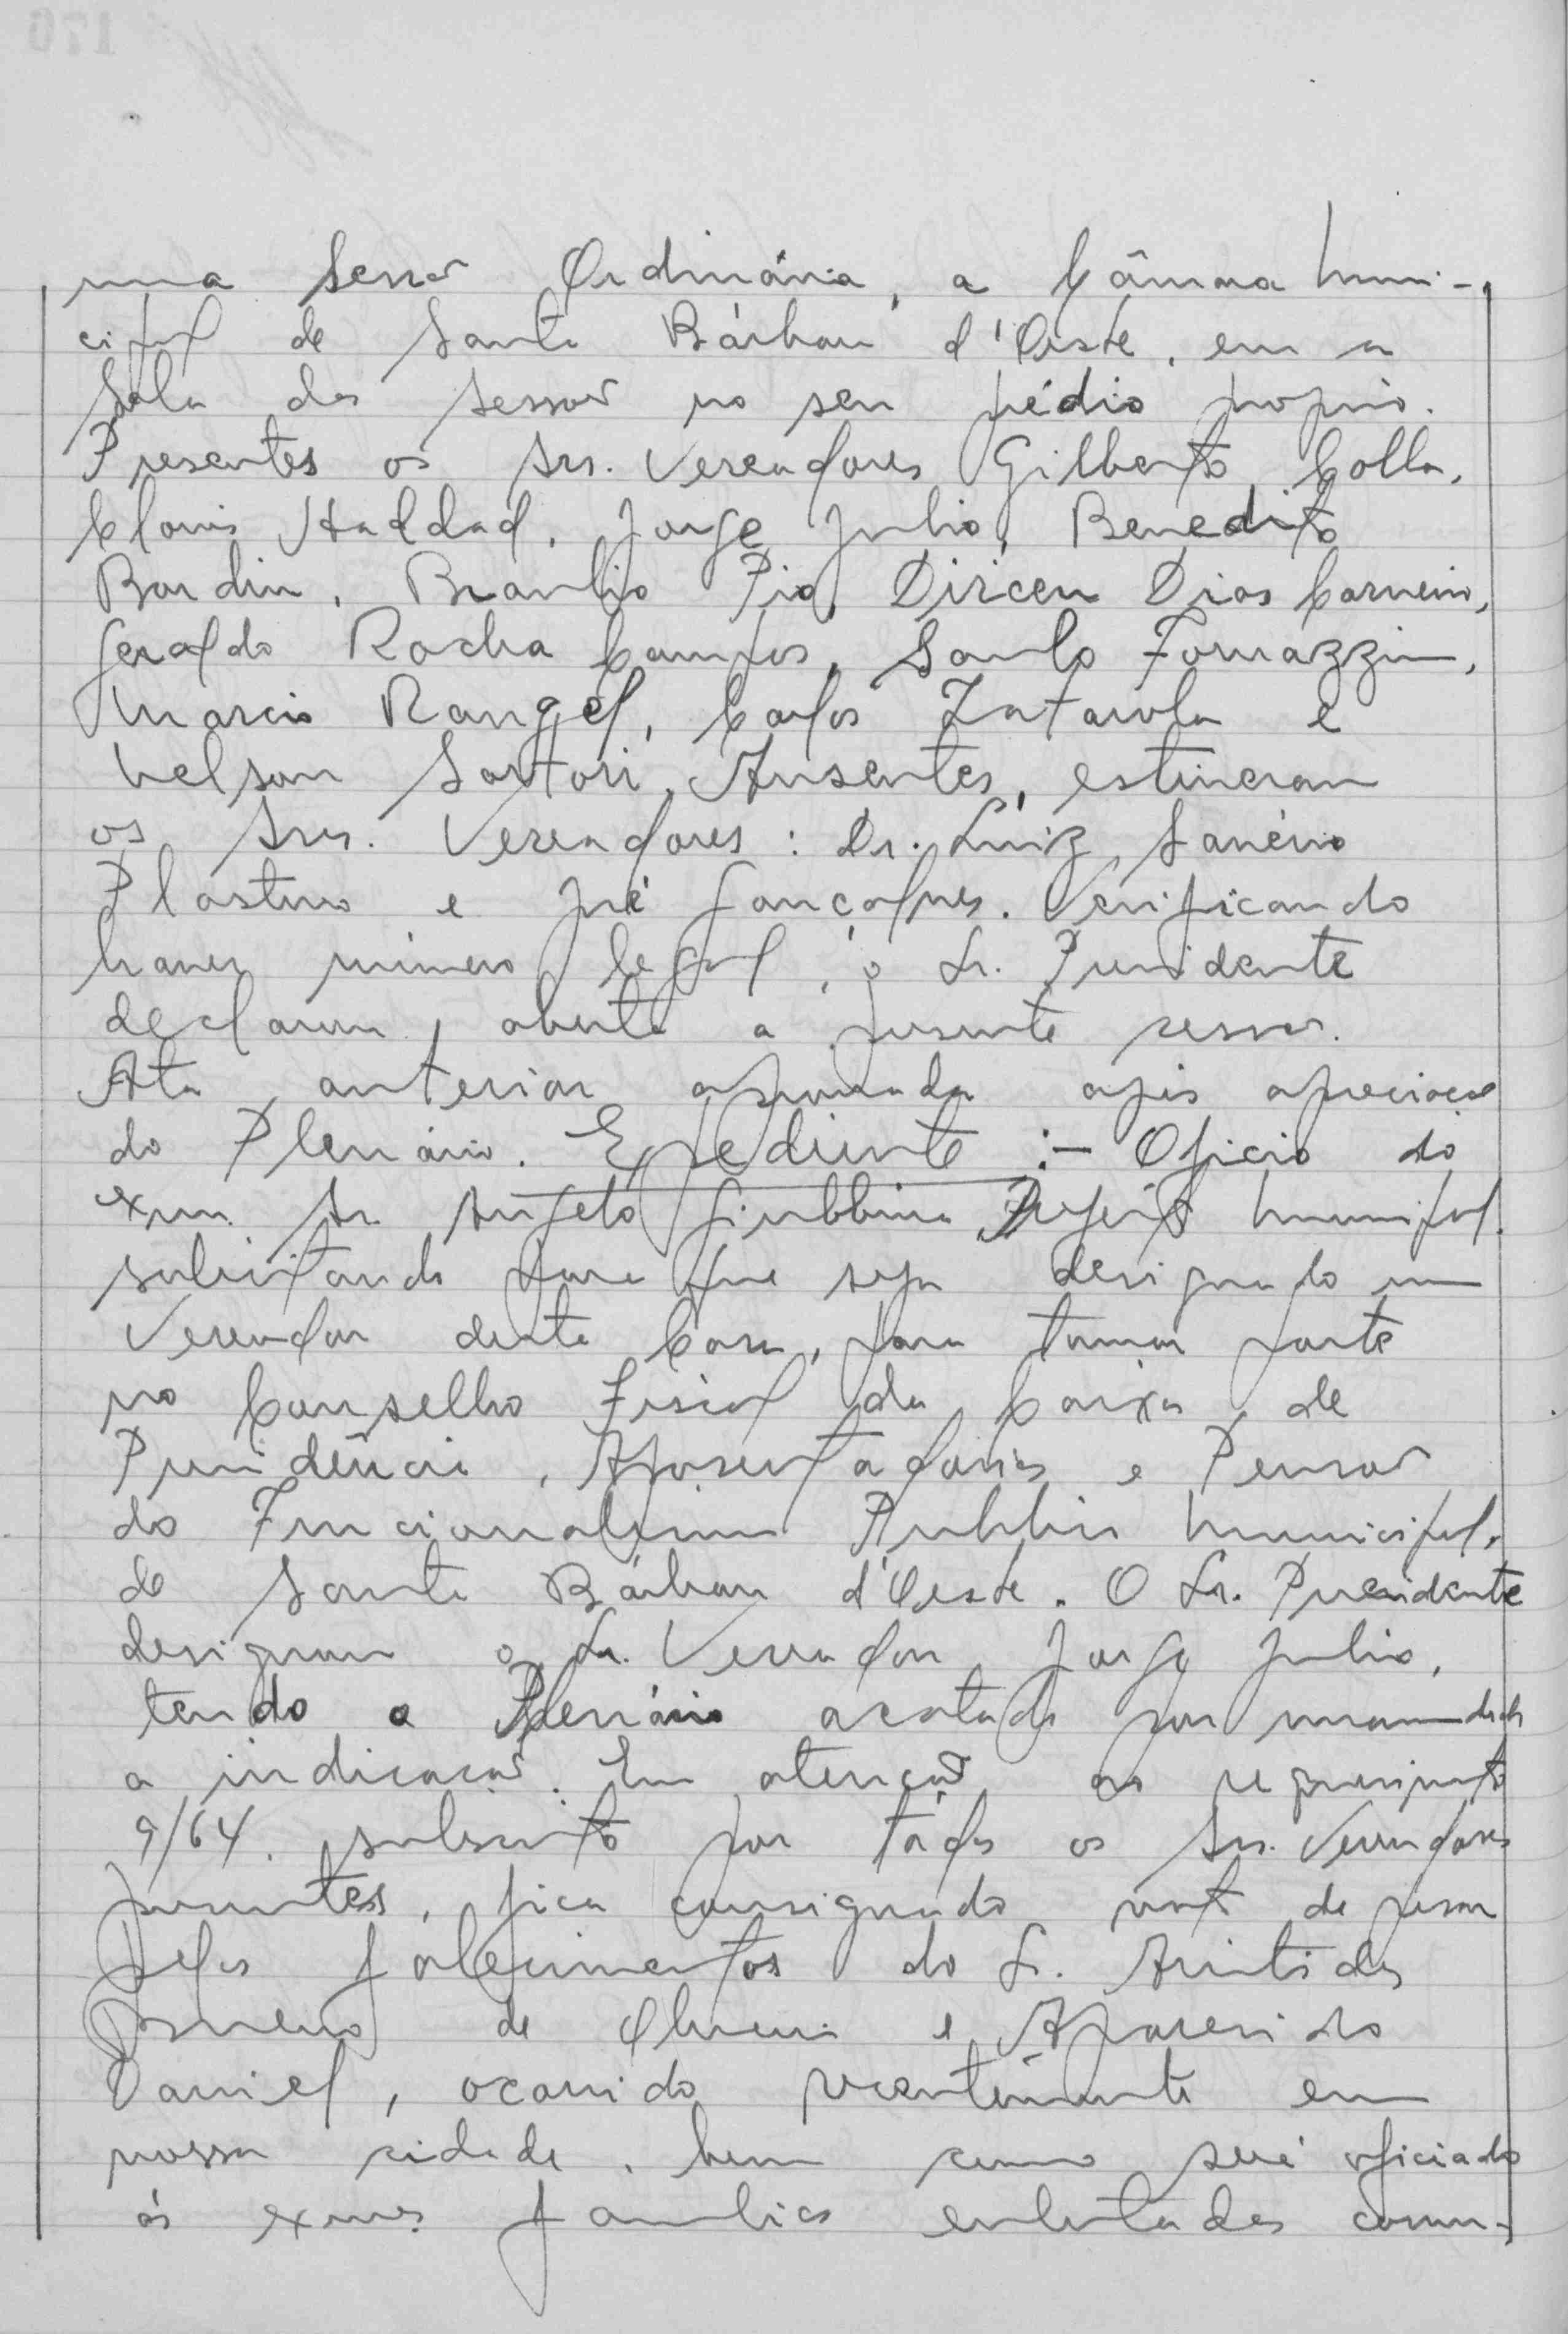 uma Sessão Ordinária, a Câmara Muni-
cipal de Santa Bárbara d'Oeste, em a
Sala das sessões no seu prédio proprio.
Presentes os Srs. Vereadores Gilberto Colla,
Clovis Haddad, Jorge Julio, Benedito
Bordin, Braulio Pio, Dirceu Dias Carneiro,
Geraldo Rocha Campos, Santo Fornazzin,
Marcio Rangel, Carlos Zatarola e
Nelson Sartori. Ausentes, estiveram
os Srs. Vereadores: Dr. Luiz Savério
e José Gonçalves. Verificando
haver número legal, o Sr. Presidente
declarou aberta a presente sessão.
Ata anterior aprovada após apreciação
do Plenário. Expediente :- Oficio do
exmo. Sr. Angelo Giubbina Prefeito Municipal.
solicitando para que seja designado um
Vereador desta Casa, para tomar parte
no Conselho Fiscal da Caixa de
Previdência, Aposentadorias e Pensões
do Funcionalismo Publico Municipal,
de Santa Bárbara d'Oeste. O Sr. Presidente
designou o Sr. Vereador Jorge Julio,
tendo o Plenário acatado por unanimidade
a indicação. Em atenção ao requerimento
9/64, subscrito por todos os Srs. Vereadores
presentes, fica consignado voto de pesar
pelos falecimentos do Sr. Aristides
Bueno de Oliveira e Aparecido
Daniel, ocorrido recentemente em
nossa cidade, bem como será oficiado
ás exmas familias enlutadas comu-